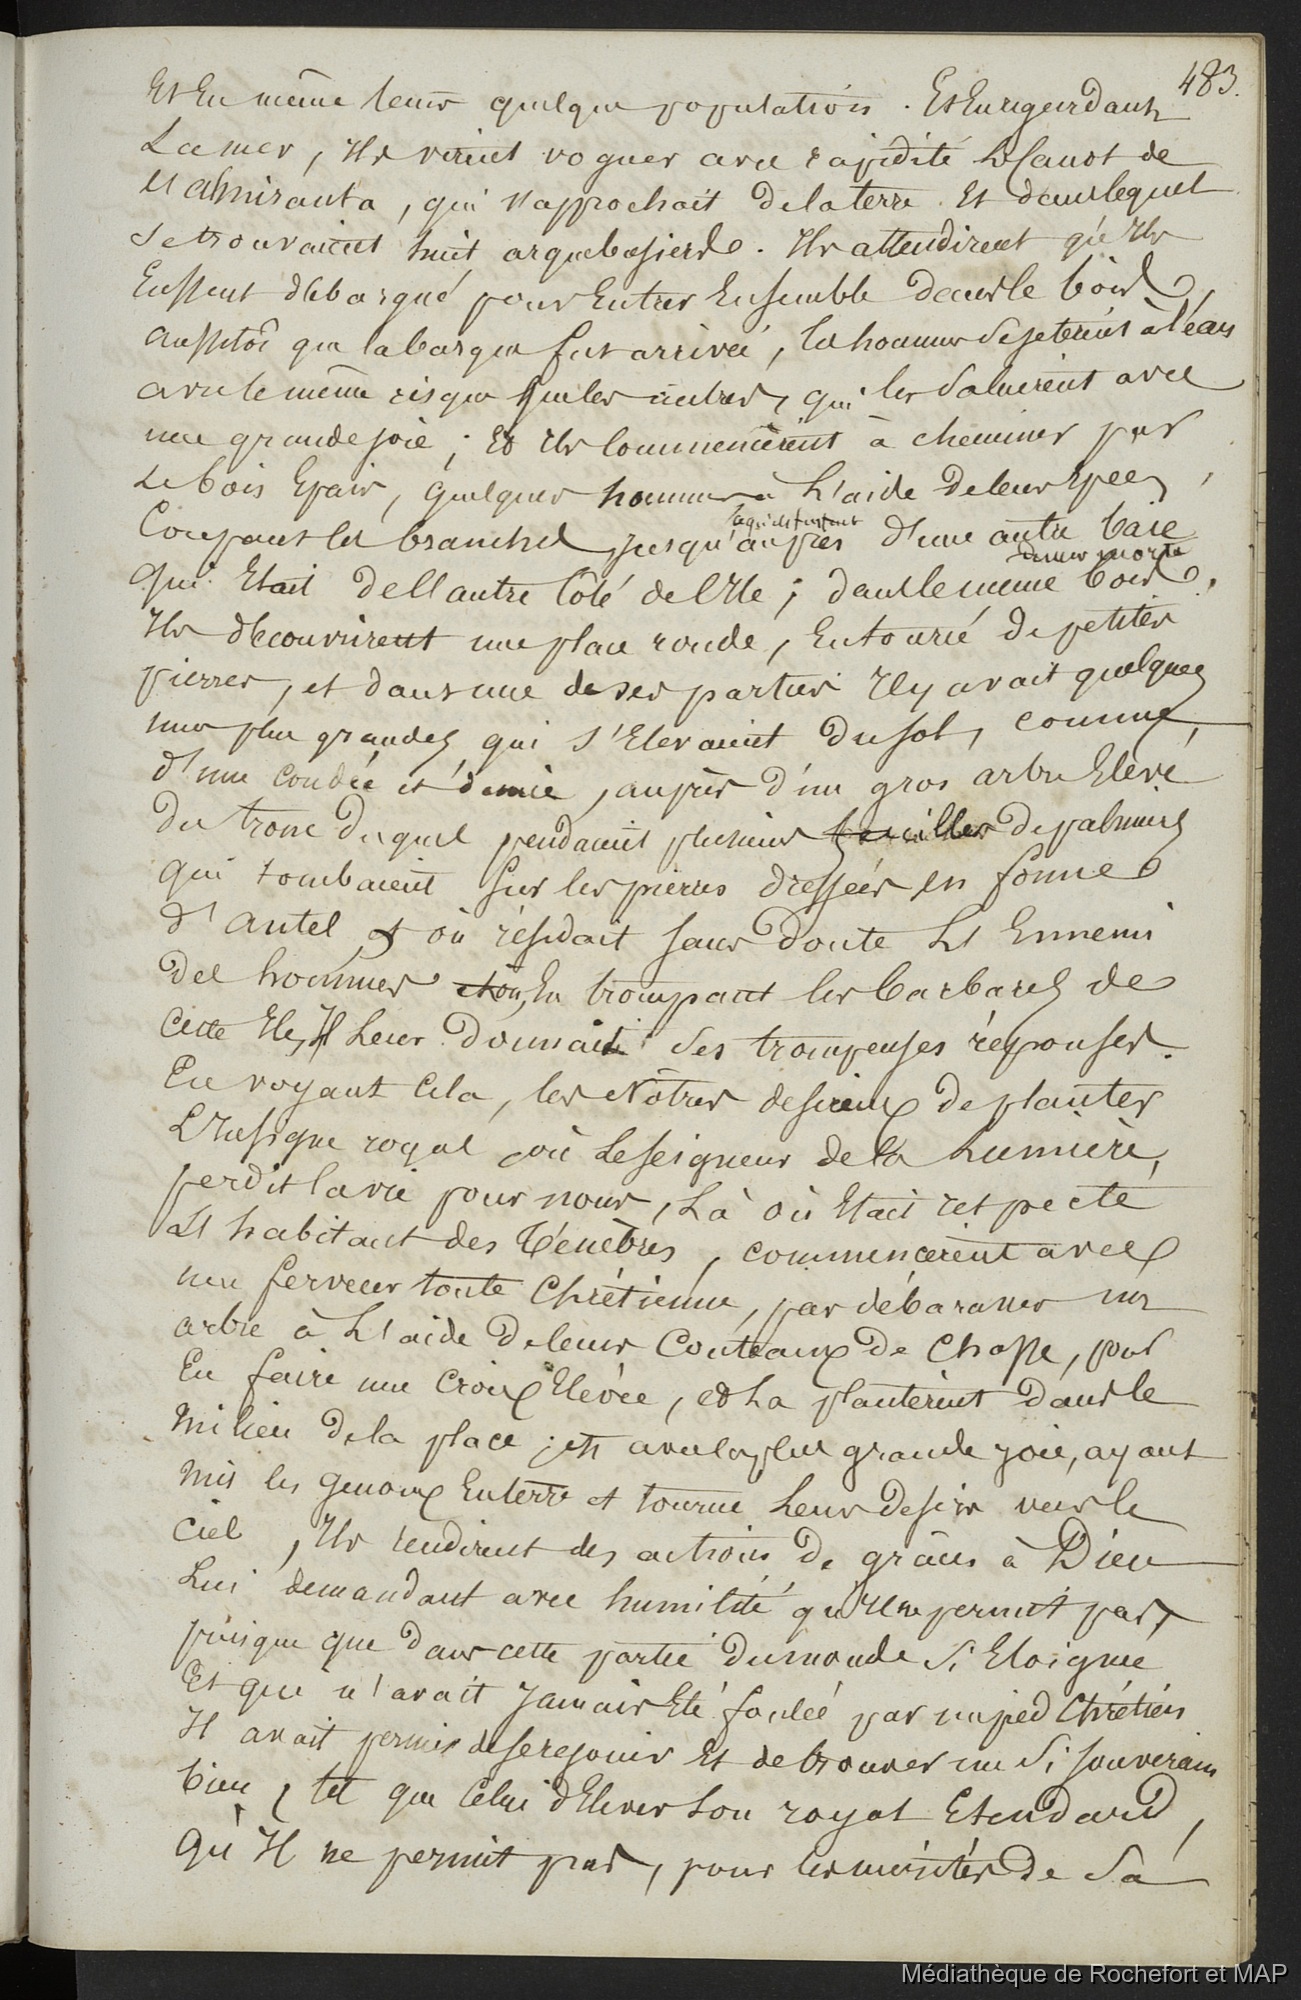 483.
Et En même tems quelque populations. Et En regardant
La mer, Ils virent voguer avec rapidité le Canot de
l'Almiranta, qui s'approchait de la terre Et dans lequel
se trouvaient huit arquebusiers. Ils attendirent qu'Ils
Eussent débarqué pour Entrer Ensemble dans le bois,
aussitôt que la barque fut arrivée, les hommes se jeterent à l'eau
avec le même risque que les autres, qui les saluèrent avec
une grande joie ; Et Ils Commencèrent à cheminer par
Le bois Epais, quelques hommes à L'aide de leur Epées,
Coupant les branches, jusqu'auprès d'une autre baie
de mer morte
qui Etait de l'autre Côté de l'Ile ; dans le meme bois,
Ils découvrirent une place ronde, Entourée de petites
pierres, et dans une de ses parties Il y avait quelques
unes plus grandes, qui s'Elevaient du sol, comme,
d'une coudée et demie, auprès d'un gros arbre Elévé
du tronc duquel pendaient plusieurs feuilles de palmiers
qui tombaient sur les pierres dressées en forme
d'autel et où résidait sans doute L'Ennemi
des hommes et où, En trompant les barbares de
Cette Ile, Il Leur donnait ses trompeuses réponses.
En voyant Cela, les Nôtres desireux de planter
L'Insigne royal où Le seigneur de la Lumière,
perdit la vie pour nous, Là où Etait respecté
L'habitant des Ténèbres, commencèrent avec
une ferveur toute Chrétienne, par débarasser un
arbre à L'aide de leurs Couteaux de Chasse, pour
En faire une Croix Elevée, et La plantèrent dans le
Milieu de la place ; et avec la plus grande joie, ayant
mis les genoux En terre et tourné Leur desir vers le
Ciel, Ils rendirent des actions de grâces à Dieu
Lui demandant avec humilité qu'Il ne permit pas,
puisque que dans cette partie du monde si Eloignée
Et que n'avait Jamais Eté foulée par un pied Chrétien
Il avait permis de se rejouir Et de trouver un si souverain
bien, tel que Celui d'Elever son royal Etendard,
qu'Il ne permit pas, pour les mérites de Sa